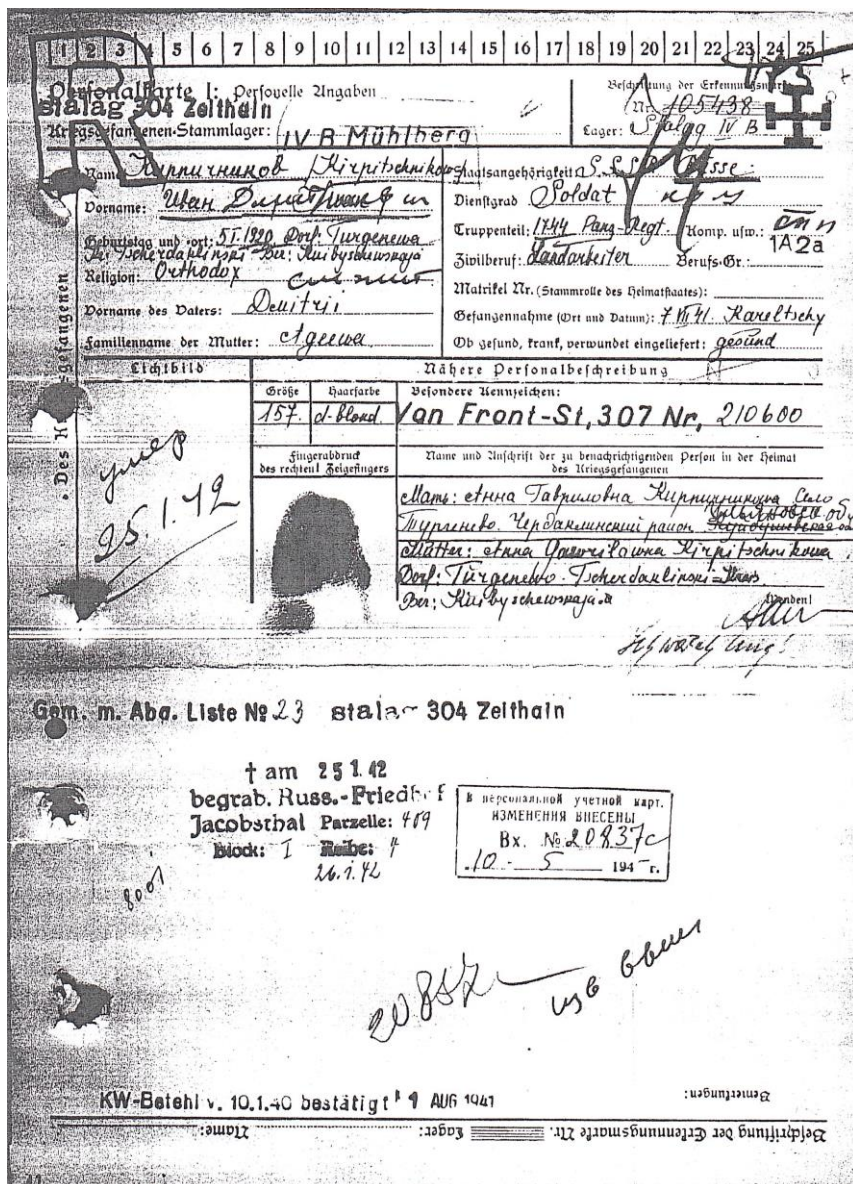 1 2 3 4 5 6 7 8 9 10 11 12 13 14 15 16 17 18 19 20 21 22 23 24 25
Personalkarte I: Personelle Angaben
stalag 304 Zeithain
Kriegsgefangenen-Stammlager: IV B Mühlberg
Beschriftung der Erkennungsmarke
Nr. 105438
Lager: Stalag IV B
Des Kriegsgefangenen
Name: Кирпичников /Kirpitschnikow
Vorname: Иван
Geburtstag und -ort: 5.I.1920 Dorf: Turgenewa
Tscherdaklinski-Ber: Kuibyschewskaja
Religion: Orthodox
Vorname des Vaters: Dmitrii
Familienname der Mutter: Ageewa
Staatsangehörigkeit: S.S.S.R. Russe
Dienstgrad: Soldat
Truppenteil: 1744 Panz-Regt. Komp. usw.:
1A2a
Zivilberuf: Landarbeiter Berufs-Gr.:
Matrikel Nr. (Stammrolle des Heimatstaates):
Gefangennahme (Ort und Datum): 7.VII.41. Kareltschy
Ob gesund, krank, verwundet eingeliefert: gesund
Lichtbild
умер
25.1.42
Nähere Personalbeschreibung
Größe Haarfarbe Besondere Kennzeichen:
157. d-blond Van Front-St, 307 Nr, 210600
Fingerabdruck
des rechten! Zeigefingers
Name und Anschrift der zu benachrichtigenden Person in der Heimat
des Kriegsgefangenen
Мать: Анна Гавриловна Кирпичникова Село
Тургенево. Чердаклинский район
Mutter: Anna Gawrilowna Kirpitschnikowa
Dorf: Turgenewo-Tscherdaklinski-Kreis
Ber: Kuibyschewskaja
Wenden!
Gem. m. Abg. Liste № 23 stalag 304 Zeithain
† am 25 1.42
begrab. Russ.-Friedhof
Jacobsthal Parzelle: 409
Block: I Reihe: 4
26.1.42
В персональной учетной карт.
ИЗМЕНЕНИЯ ВНЕСЕНЫ
Вх. № 20837с
10 - 5 194 г.
KW-Befehl v. 10.1.40 bestätigt 1 AUG 1941
Bemerkungen:
Name: Lager: Beschriftung der Erkennungsmarke Nr.